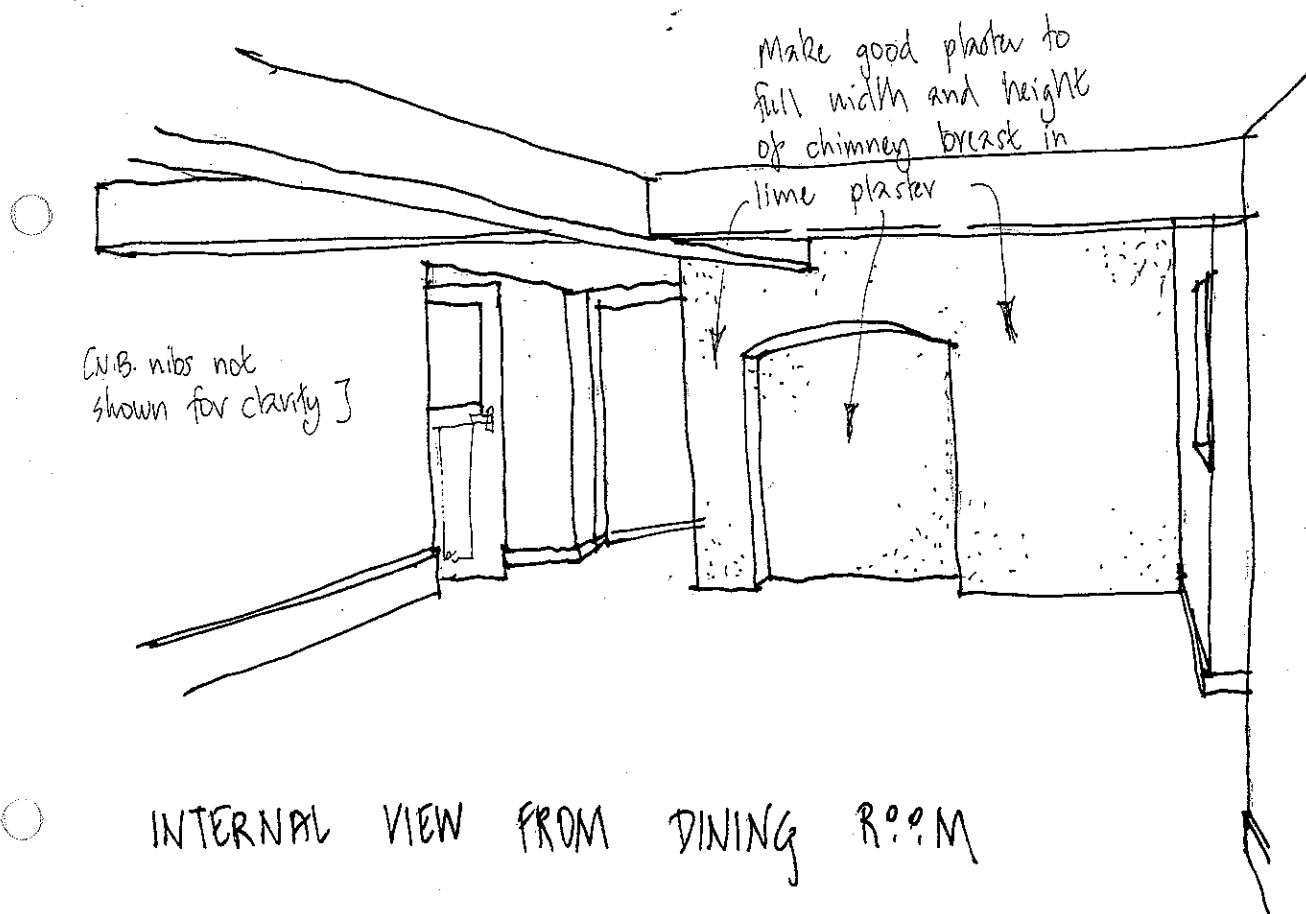 Make good plaster to
full width and height
of chimney breast in
lime plaster
[N.B. nibs not
shown for clarity]
INTERNAL VIEW FROM DINING ROOM